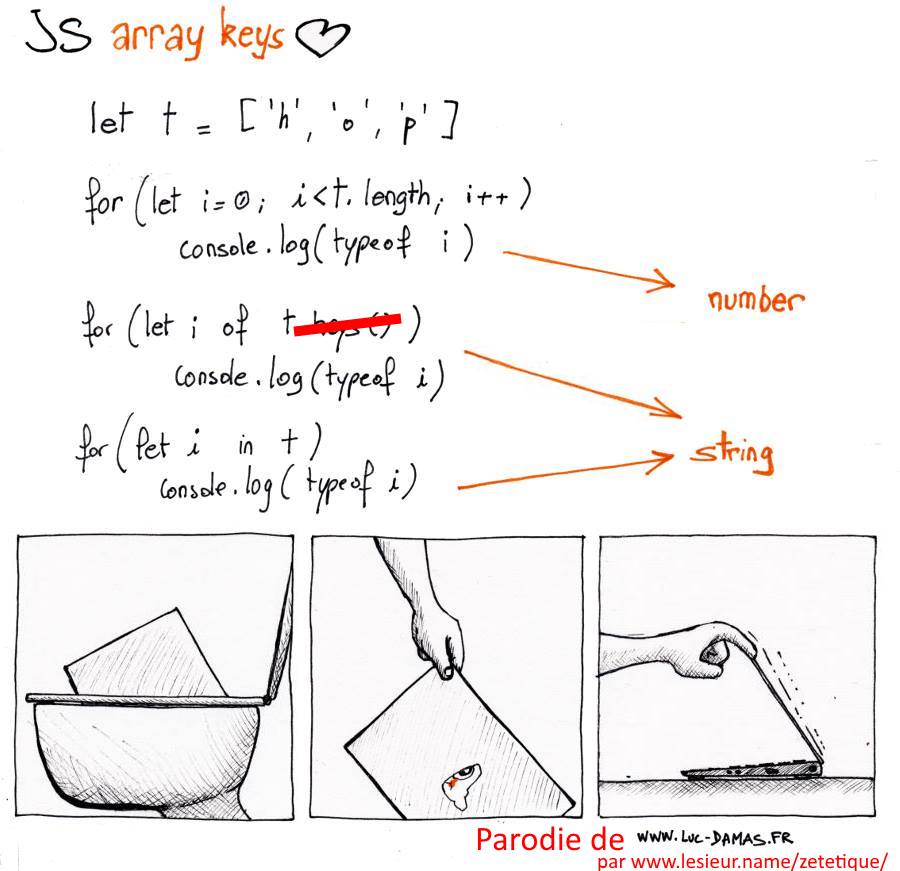 JS array keys
let t = ['h', 'o', 'p']
for (let i=0; i<t.length; i++)
console.log(typeof i)
number
for (let i of t.keys())
console.log(typeof i)
for (let i in t)
console.log(typeof i)
string
Parodie de www.luc-damas.fr
par www.lesieur.name/zetetique/